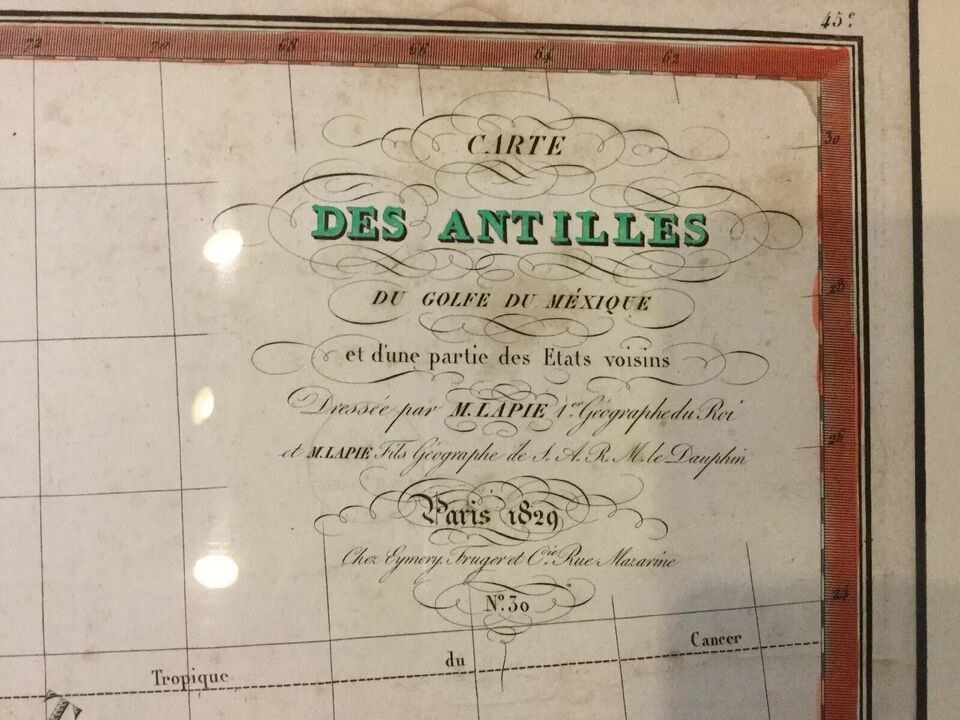 45e
72 70 68 66 64 62
CARTE
30
DES ANTILLES
28
DU GOLFE DU MÉXIQUE
et d'une partie des Etats voisins
Dressée par M. LAPIE 1er Géographe du Roi
26
et M. LAPIE Fils Géographe de S. A. R. M. le Dauphin
Paris 1829
Chez Eymery, Fruger et Cie Rue Mazarine
24
No. 30
Tropique du Cancer